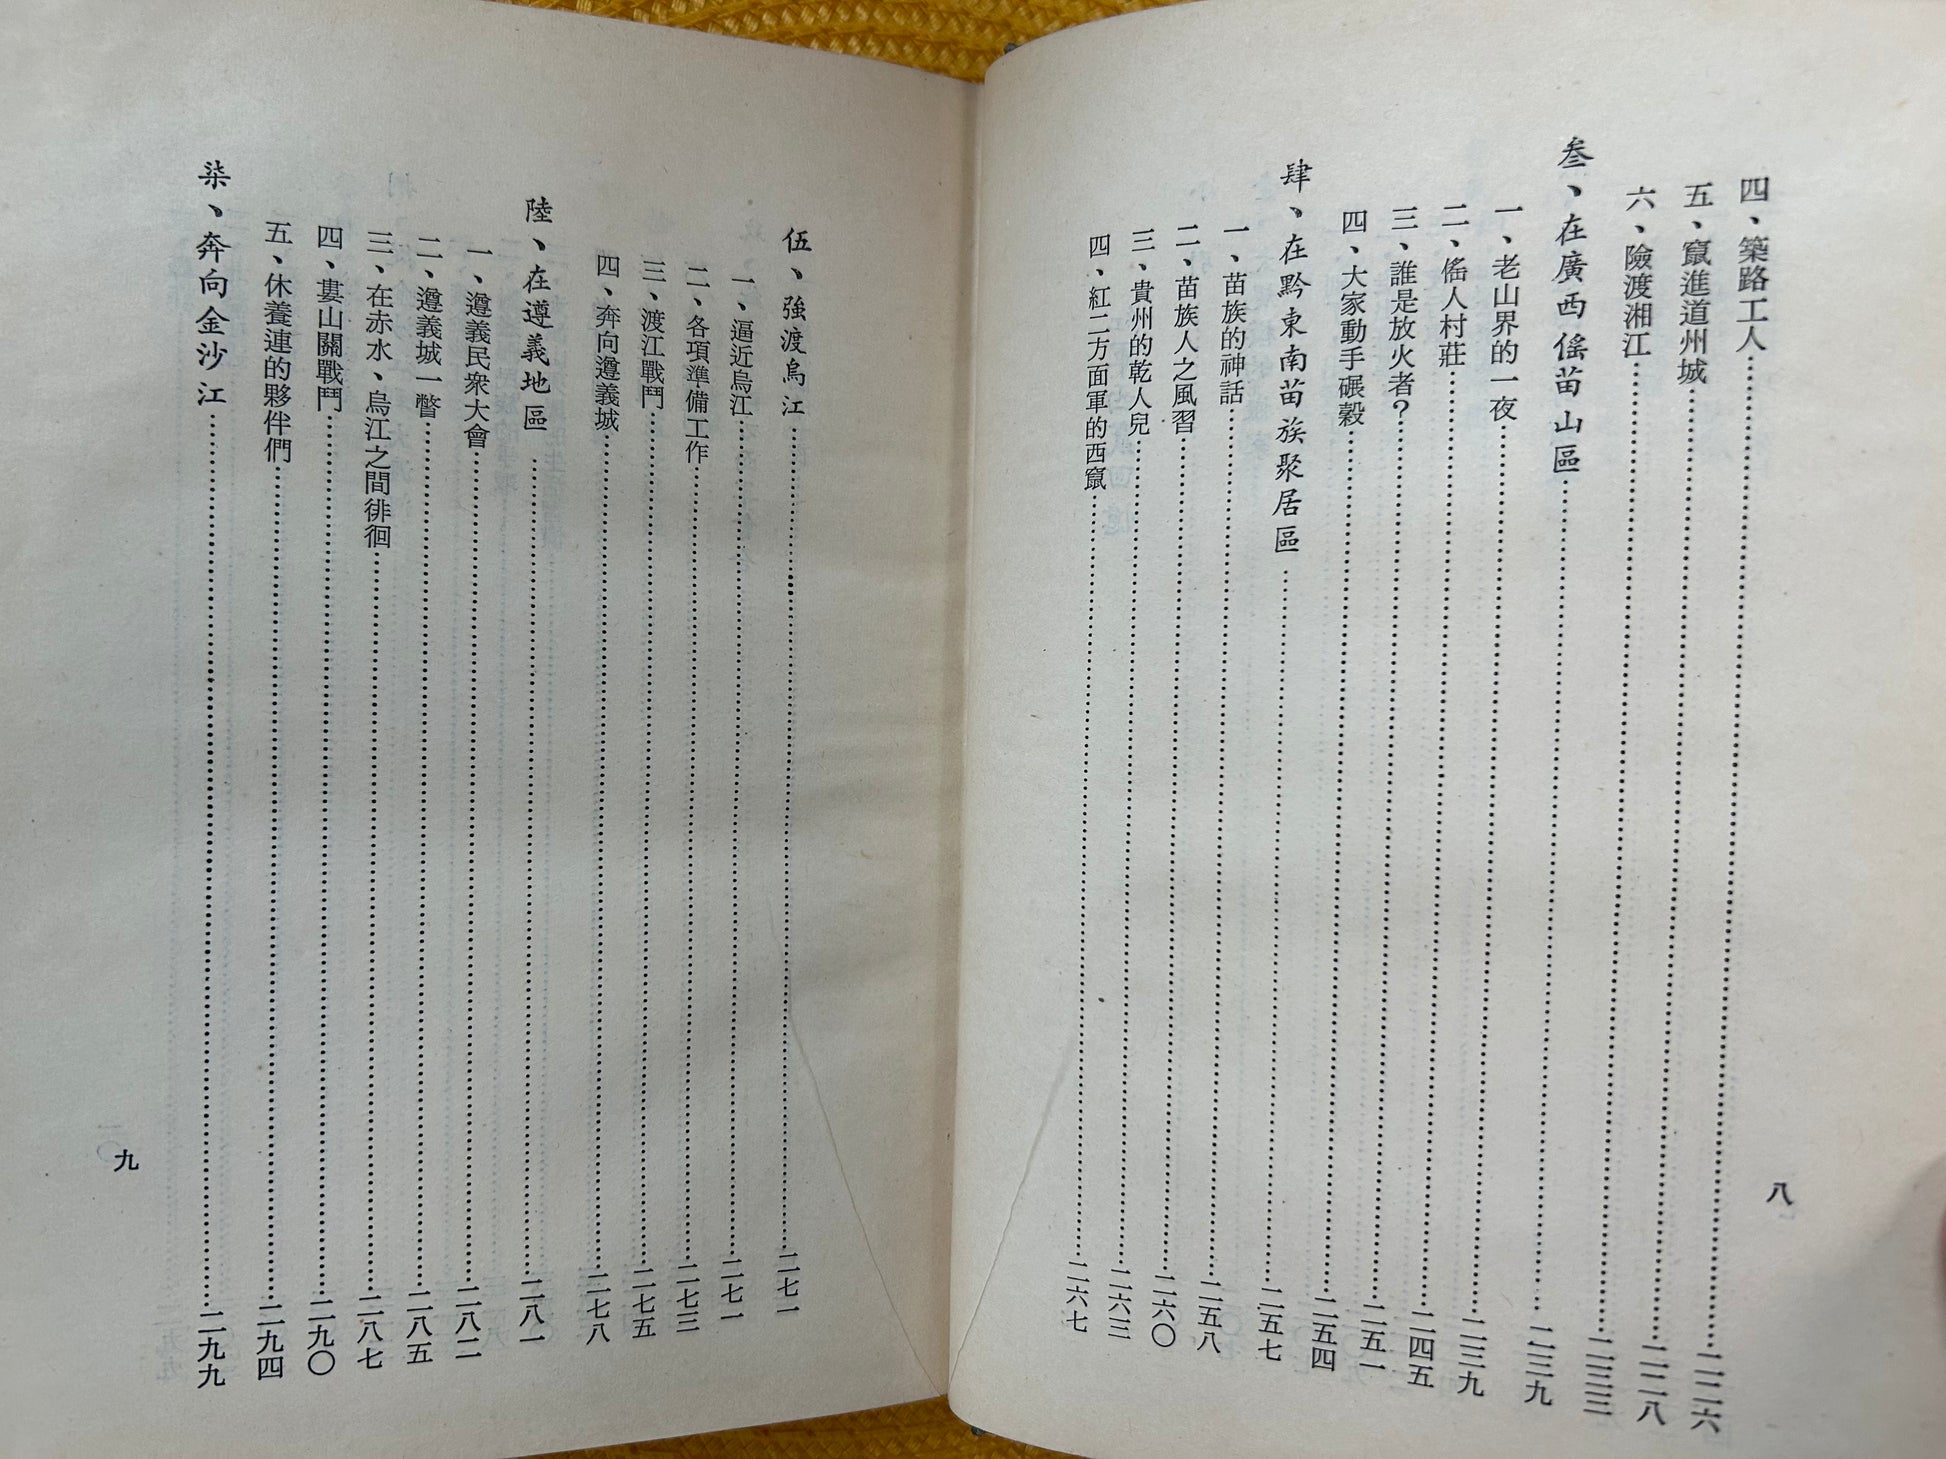 四、築路工人⋯⋯二二六
五、竄進道州城⋯⋯二二八
六、險渡湘江⋯⋯二三三
叁、在廣西傜苗山區⋯⋯二三九
一、老山界的一夜⋯⋯二三九
二、傜人村莊⋯⋯二四五
三、誰是放火者?⋯⋯二五一
四、大家動手碾穀⋯⋯二五四
肆、在黔東南苗族聚居區⋯⋯二五七
一、苗族的神話⋯⋯二五八
二、苗族人之風習⋯⋯二六〇
三、貴州的乾人兒⋯⋯二六三
四、紅二方面軍的西竄⋯⋯二六七
八
伍、強渡烏江⋯⋯二七一
一、逼近烏江⋯⋯二七一
二、各項準備工作⋯⋯二七三
三、渡江戰鬥⋯⋯二七五
四、奔向遵義城⋯⋯二七八
陸、在遵義地區⋯⋯二八一
一、遵義民衆大會⋯⋯二八二
二、遵義城一瞥⋯⋯二八五
三、在赤水、烏江之間徘徊⋯⋯二八七
四、婁山關戰鬥⋯⋯二九〇
五、休養連的夥伴們⋯⋯二九四
柒、奔向金沙江⋯⋯二九九
九